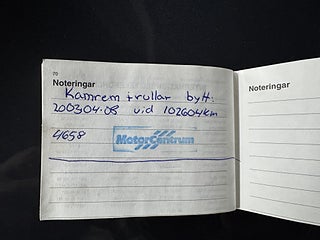 70
Noteringar
Kamrem + rullar bytt:
200304-08 vid 102604km
4698
MotorCentrum
Noteringar